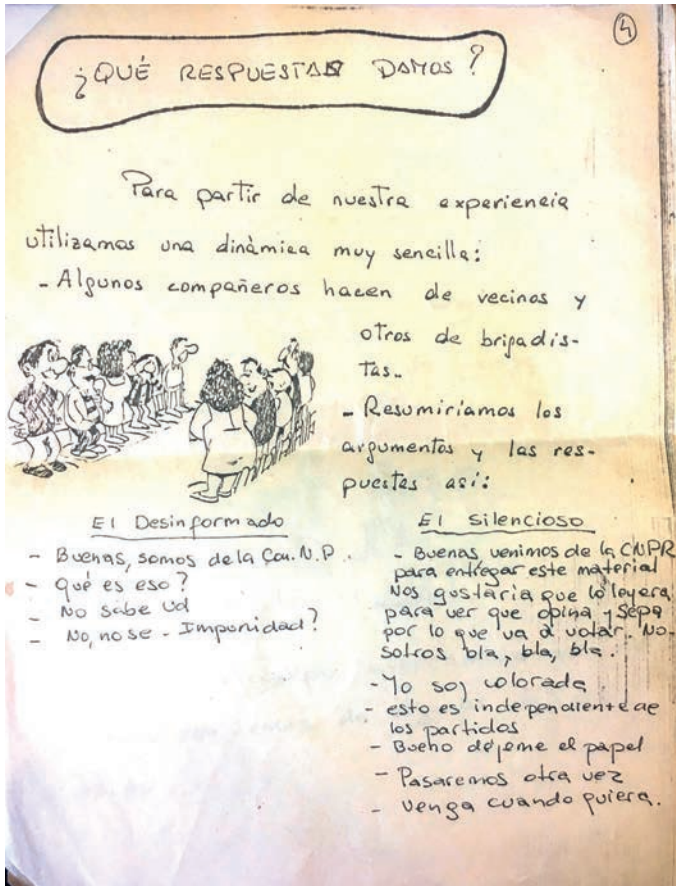 4
¿QUÉ RESPUESTAS DAMOS?
Para partir de nuestra experiencia
utilizamos una dinàmica muy sencilla:
- Algunos compañeros hacen de vecinos y
otros de brigadis-
tas.-
- Resumiríamos los
argumentos y las res-
puestas así:
El Desinformado
- Buenas, somos de la Com. N.P.
- Qué es eso?
- No sabe Ud
- No, no se - Impunidad?
El Silencioso
- Buenas, venimos de la CNPR
para entregar este material
Nos gustaría que lo leyera
para ver que opina y sepa
por lo que va a votar. No-
sotros bla, bla, bla.
- Yo soy colorada
- esto es independiente de
los partidos
- Bueno déjeme el papel
- Pasaremos otra vez
- venga cuando quiera.